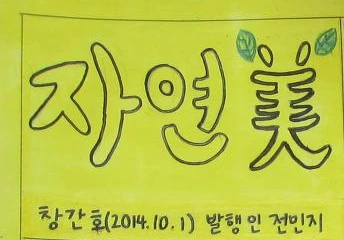 자연美
창간호(2014.10.1) 발행인 전민지